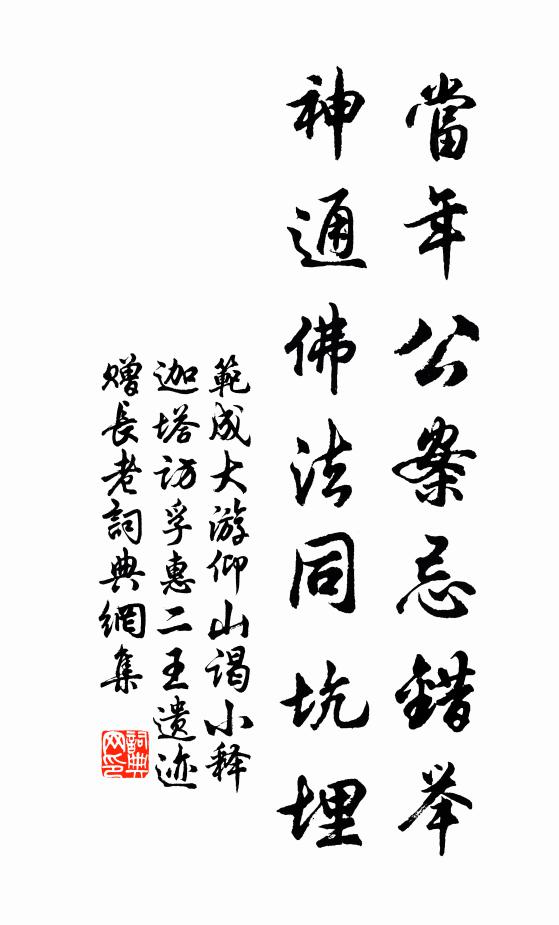 當年公案忌錯举
神通佛法同坑埋
範成大游仰山谒小释
迦塔访孚惠二王遗迹
赠長老詞典網集
詞典網印